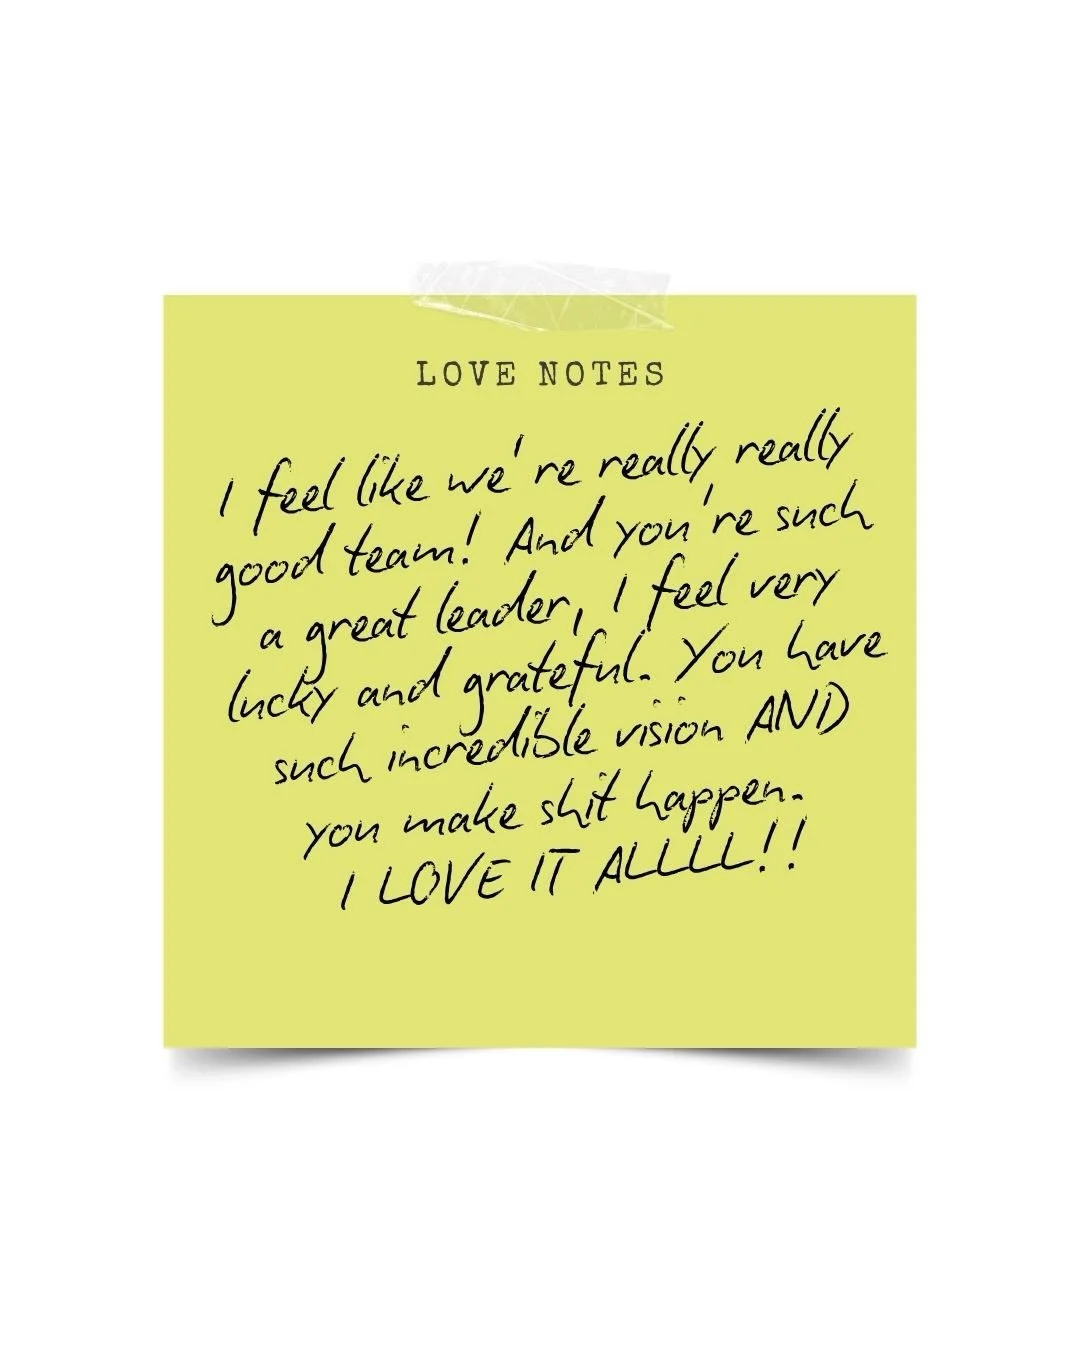 LOVE NOTES
I feel like we're really really
good team! And you're such
a great leader, I feel very
lucky and grateful. You have
such incredible vision AND
you make shit happen.
I LOVE IT ALLLL!!